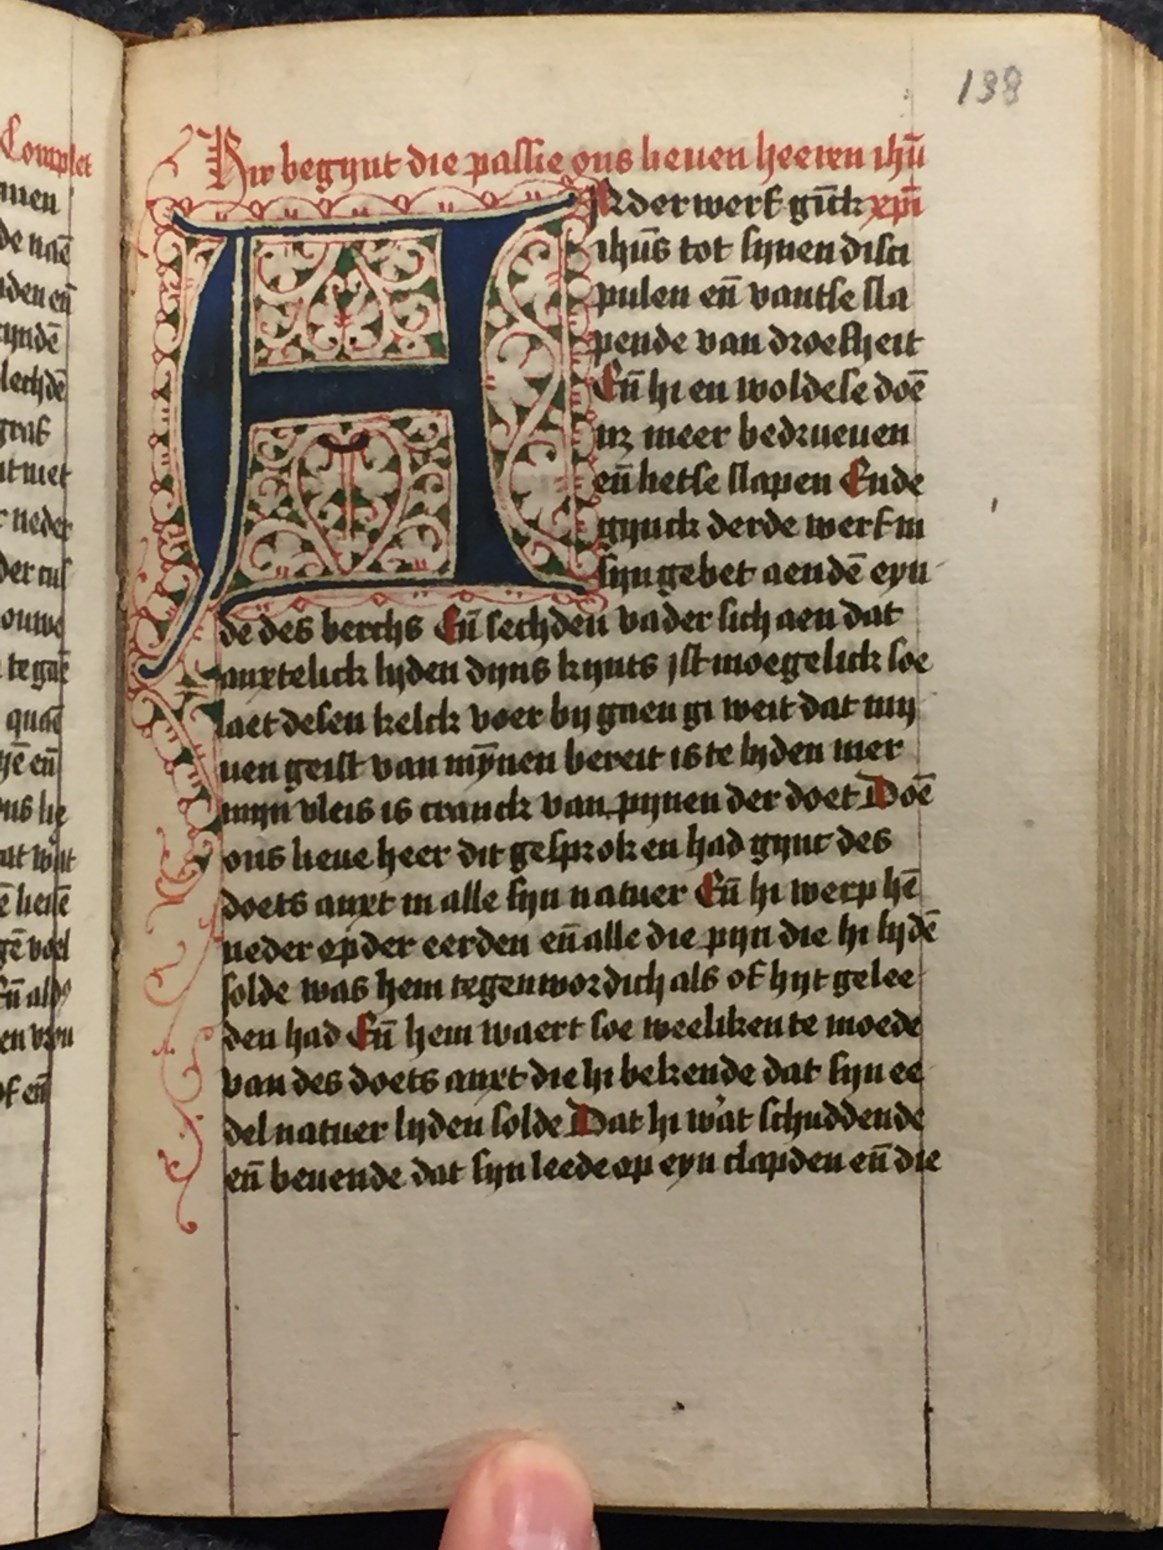 Complet
138
Hir begynt die passie ons lieuen heeren ihū
ANderwerf gīck xpī
ihūs tot synen disci
pulen eñ vantse sla
pende van droefheit
Eñ hi en woldese doē
nz meer bedrueuen
eñ hetse slapen Ende
gynck derde werf in
syn gebet aendē eyn
de des berchs Eñ sechden vader sich aen dat
anxtelick lyden dyns kynts Ist moegelick soe
laet desen kelck voer by gaen gi weit dat my
nen geist van mȳnen bereit is te lyden mer
mijn vleis is cranck van pynen der doet Doē
ons lieue heer dit gesproken had gync des
doets anxt in alle syn natuer Eñ hi werp hē
neder op der eerden eñ alle die pyn die hi lydē
solde was hem tegenwordich als of hyt gelee
den had Eñ hem waert soe weeliken te moede
van des doets anxt die hi bekende dat syn ee
del natuer lyden solde Dat hi wat schuddende
eñ beuende dat syn leede op eyn clapden eñ die